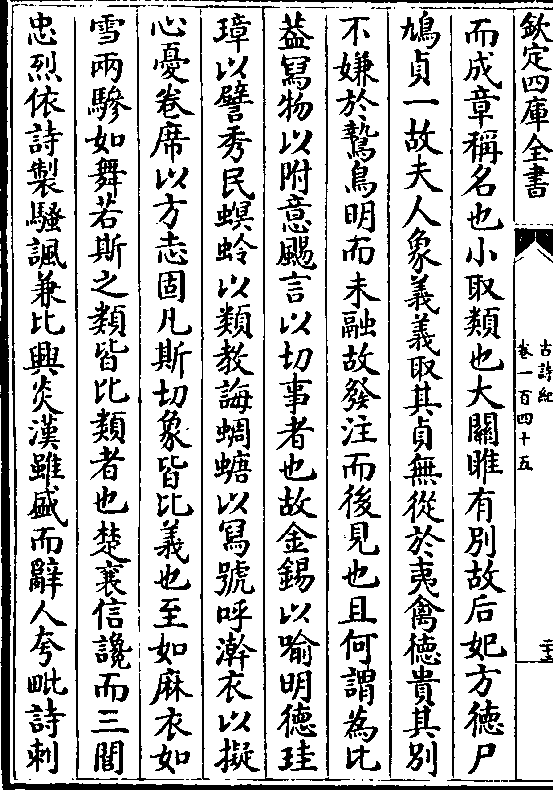 欽定四庫全書
古詩紀
卷一百四十五
而成章稱名也小取類也大關雎有別故后妃方德尸
鳩貞一故夫人象義義取其貞無從於夷禽德貴其別
不嫌於鷙鳥明而未融故發注而後見也且何謂為比
葢冩物以附意颺言以切事者也故金錫以喻明德珪
璋以譬秀民螟蛉以類教誨蜩螗以冩號呼澣衣以擬
心憂卷席以方志固凡斯切象皆比義也至如麻衣如
雪兩驂如舞若斯之類皆比類者也楚襄信讒而三閭
忠烈依詩製騷諷兼比興炎漢雖盛而辭人夸毗詩刺